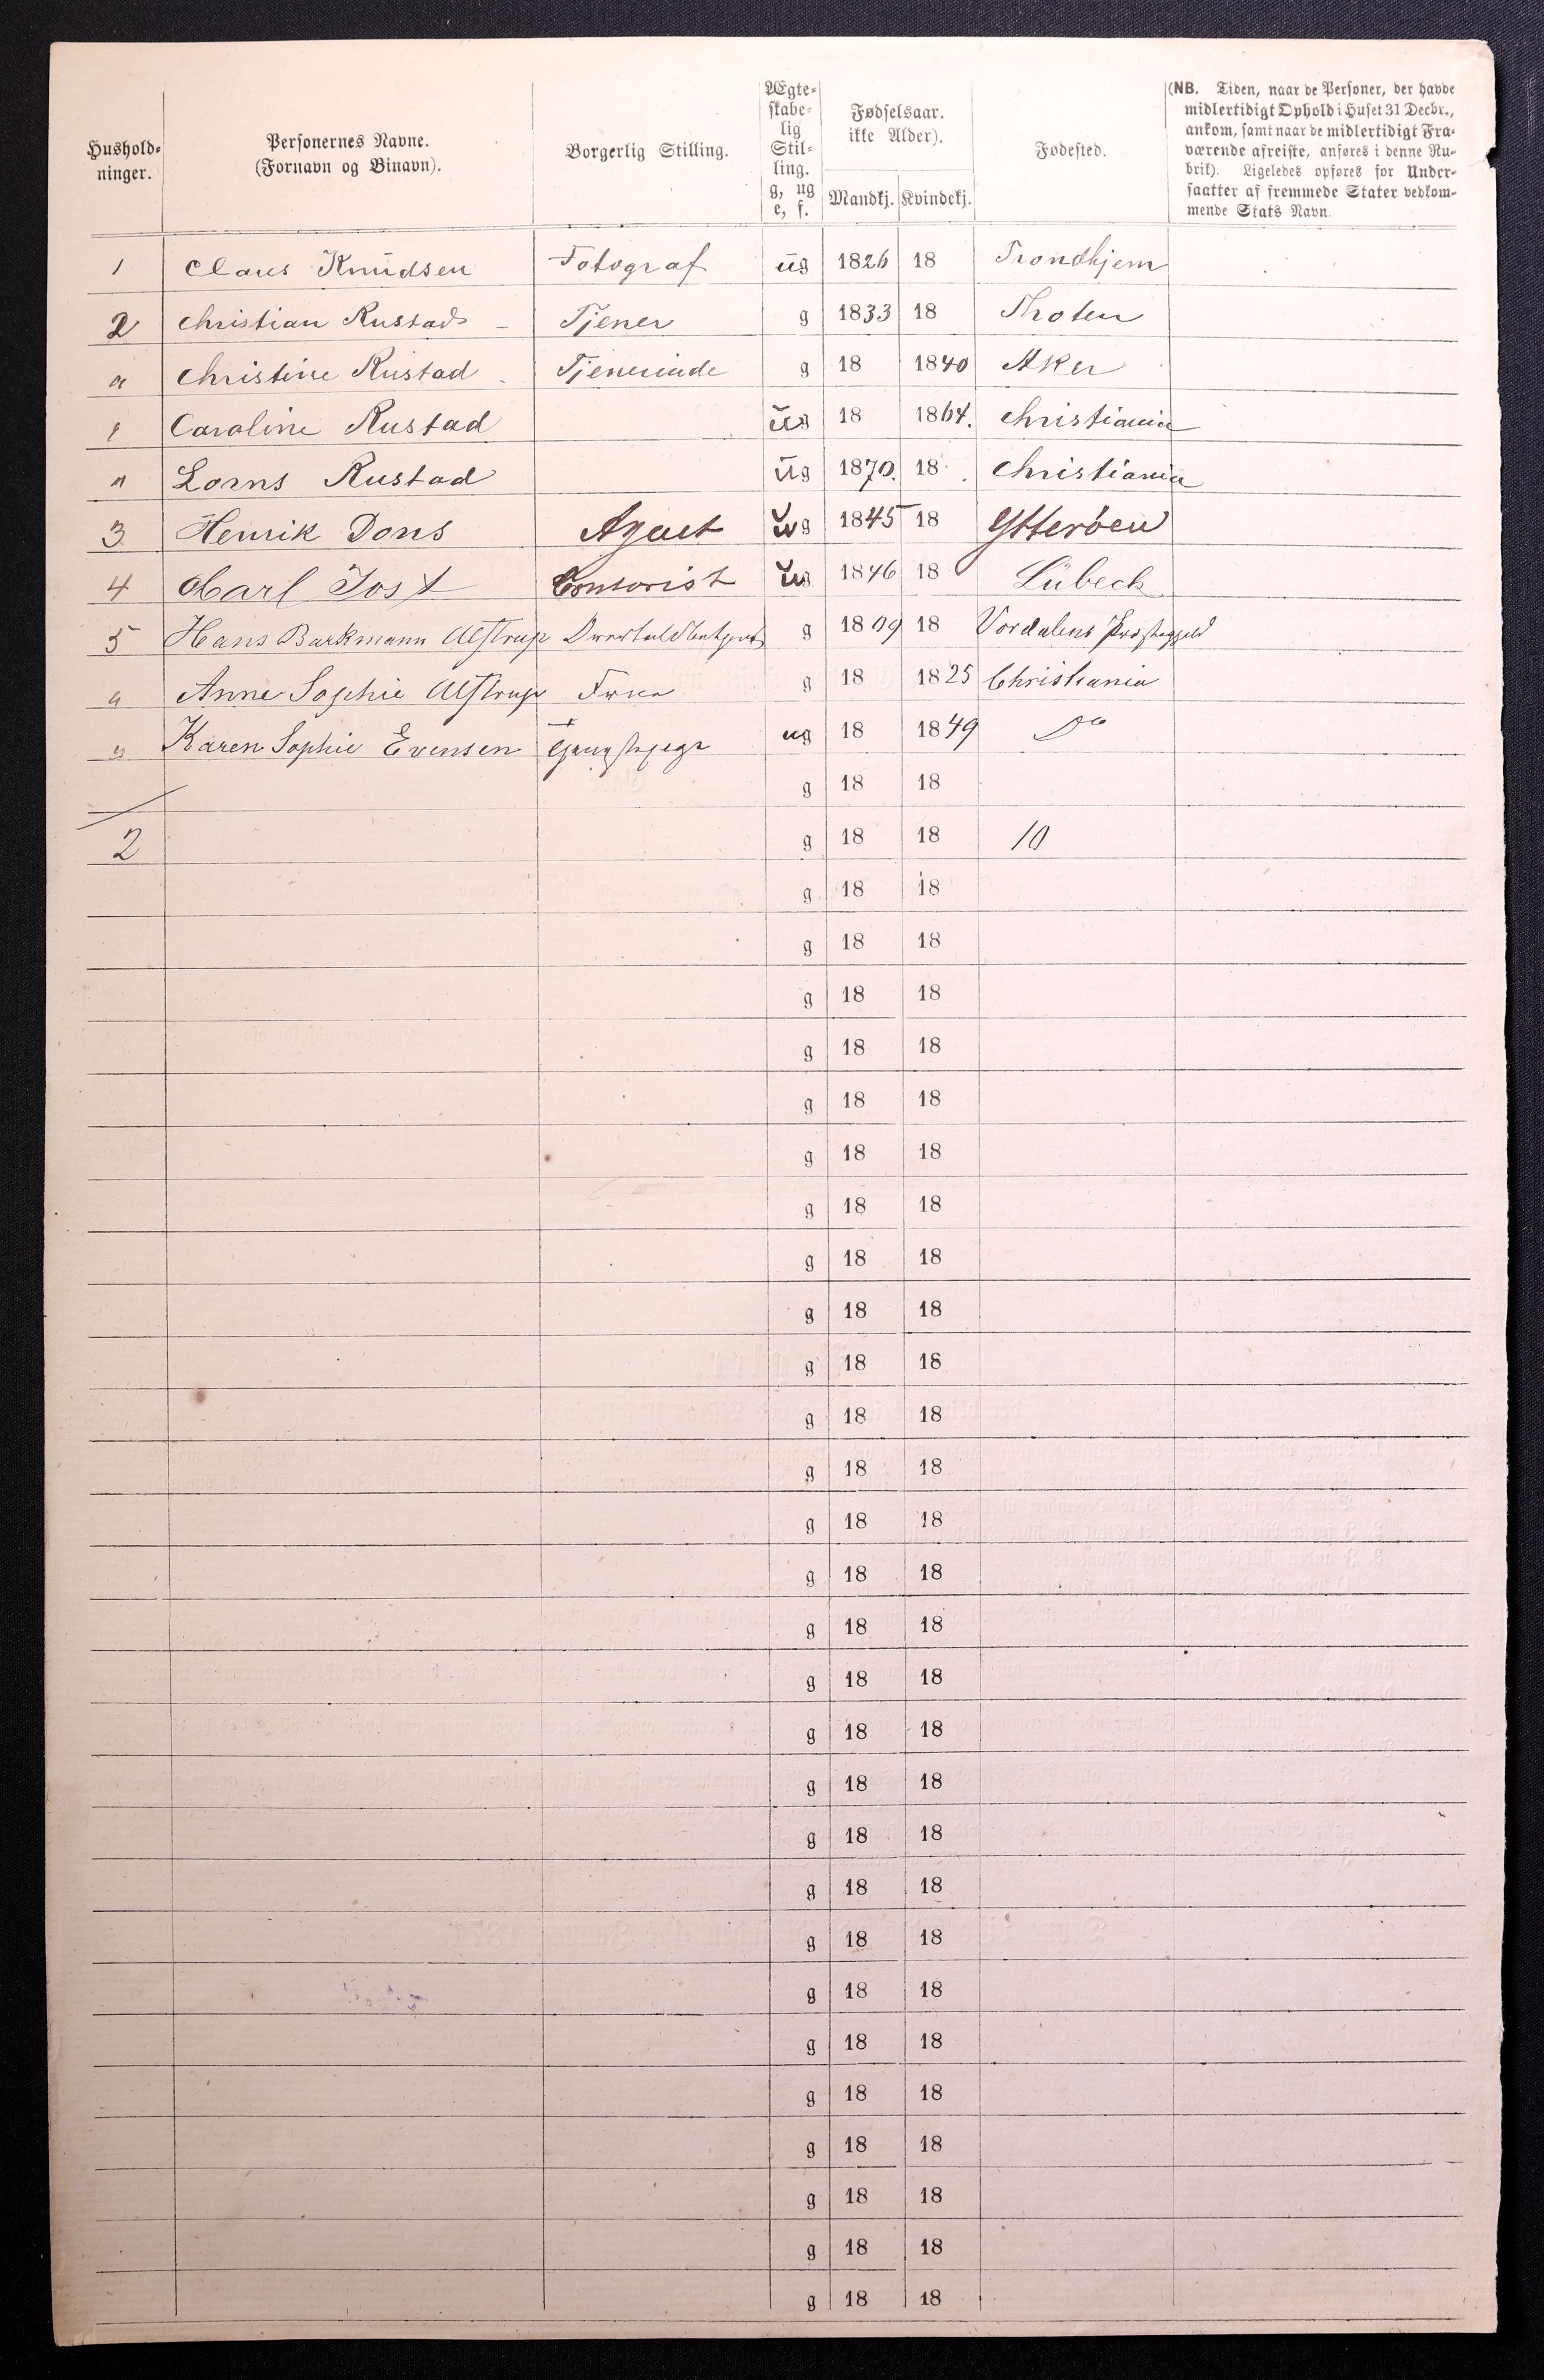 Hushold-
ninger.
Personernes Navne.
(Fornavn og Binavn).
Borgerlig Stilling.
Ægte-
skabe-
lig
Stil-
ling.
g, ug
e, f.
Fødselsaar.
ikke Alder).
Mandkj. Kvindekj.
Fødested.
(NB. Tiden, naar de Personer, der havde
midlertidigt Ophold i Huset 31 Decbr.,
ankom, samt naar de midlertidigt Fra-
værende afreiste, anføres i denne Ru-
brik). Ligeledes opføres for Under-
saatter af fremmede Stater vedkom-
mende Stats Navn.
1 Claus Knudsen Fotograf ug 1826 18 Trondhjem
2 Christian Rustad Tjener g 1833 18 Thoten
" Christine Rustad Tjenerinde g 18 1840 Aker
" Caroline Rustad ug 18 1864. Christiania
" Lorns Rustad ug 1870. 18 Christiania
3 Henrik Dons Agent ug 1845 18 Ytterøen
4 Carl Jost Contorist ug 1846 18 Lübeck
5 Hans Barkmann Alstrup g 1809 18
" Anne Sophie Alstrup g 18 1825 Christiania
" Karen Sophie Evensen ug 18 1849 Do
g 18 18
2 g 18 18 10
g 18 18
g 18 18
g 18 18
g 18 18
g 18 18
g 18 18
g 18 18
g 18 18
g 18 18
g 18 18
g 18 18
g 18 18
g 18 18
g 18 18
g 18 18
g 18 18
g 18 18
g 18 18
g 18 18
g 18 18
g 18 18
g 18 18
g 18 18
g 18 18
g 18 18
g 18 18
g 18 18
g 18 18